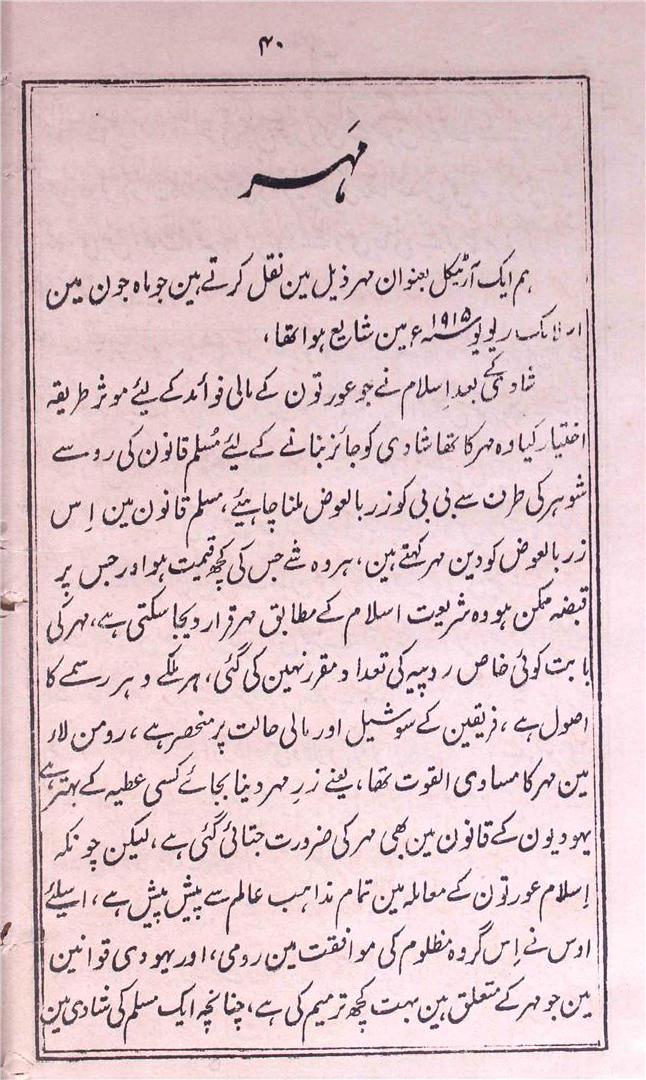 ۴۰
مَہر
ہم ایک آرٹیکل بعنوان مہر ذیل مین نقل کرتے ہین جو ماہ جون مین
اسلامک ریویو ۱۹۱۵ء مین شایع ہوا تھا،
شادی کے بعد اِسلام نے جو عورتون کے مالی فوائد کے لیئے موثر طریقہ
اختیار کیا وہ مہر کا تھا شادی کو جائز بنانے کے لیئے مُسلم قانون کی رو سے
شوہر کی طرن سے بی بی کو زر بالعوض ملنا چاہیئے، مسلم قانون مین اِس
زر بالعوض کو دین مہر کہتے ہین، ہر وہ شے جس کی کچھ قیمت ہو اور جس پر
قبضہ ممکن ہو وہ شریعت اسلام کے مطابق مہر قرار دیجا سکتی ہے، مہر کی
بابت کوئی خاص روپیہ کی تعداد مقرر نہین کی گئی، ہر ملکے و ہر رسمے کا
اصول ہے، فریقین کے سوشیل اور مالی حالت پر منحصر ہے، رومن لار
مین مہر کا مساوی القوت تھا، یعنے زرِ مہر دینا بجائے کسی عطیہ کے بہتر ہے
یہودیون کے قانون مین بھی مہر کی ضرورت جتائی گئی ہے، لیکن چونکہ
اِسلام عورتون کے معاملہ مین تمام مذاہب عالم سے پیش پیش ہے، ایسلئے
اوس نے اِس گروہ مظلوم کی موافقت مین رومی، اور یہودی قوانین
مین جو مہر کے متعلق ہین بہت کچھ ترمیم کی ہے، چنانچہ ایک مسلم کی شادی مین